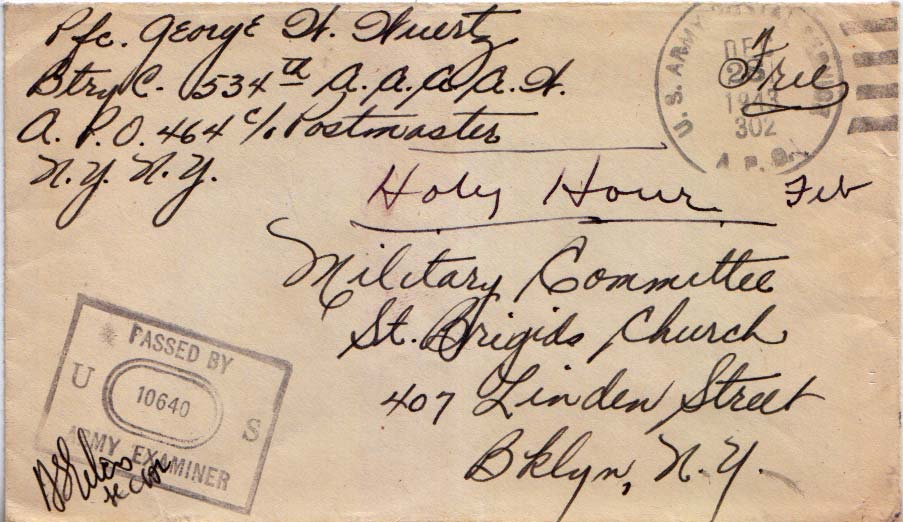 Pfc. George W. Wuertz
Btry C. 534th A.A.A. A.W.
A. P. O. 464 c/o Postmaster
N.Y. N.Y.
U.S. ARMY POSTAL SERVICE
DEC
25
194
302
A.P.O.
Free
Holy Hour Feb
Military Committee
St. Brigids Church
407 Linden Street
Bklyn, N.Y.
PASSED BY
U 10640 S
ARMY EXAMINER